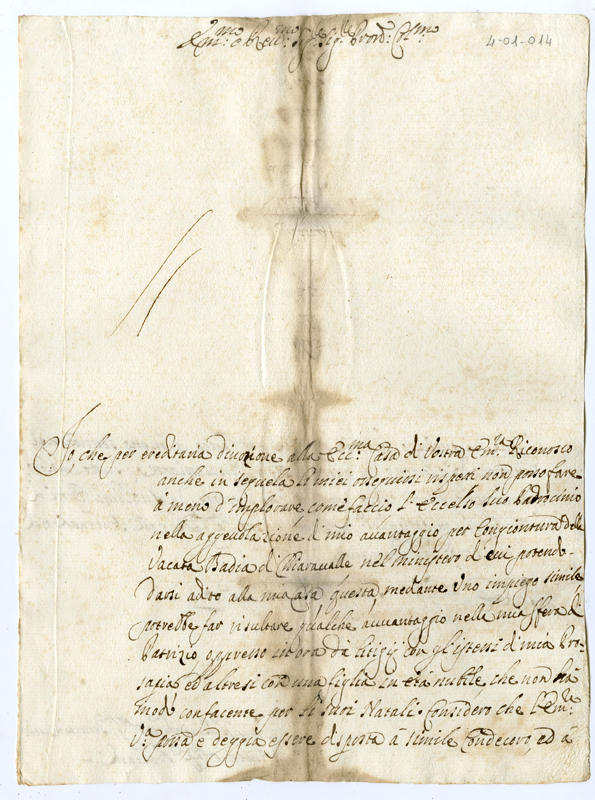 Em.mo e Rev.mo Sig.r Sig.r Pron Col.mo
4-01-014
Io, che per ereditaria divozione alla Ecc.ma Casa di Vostra Em.za Riconosco
anche in sequela li miei osservini rispeti non posso fare
à meno d'implorare come faccio l'eccelso suo Padrocinio
nella aggevolazione di mio avantaggio per Congiontura della
Vacata Badia di Chiaravalle nel ministero di cui potendo-
darsi adito alla mia casa questa mediante Uno impiego simile
potrebbe far risultare qualche avvantaggio nella mia sfera di
Patrizio oppresso in ora da litigij con gl'istessi di mia Pro-
sapia ed altresi con una figlia in età nubile che non hà
modo confacente per li suoi Natali. Considero che l'Em.
V.a possa e deggia essere disposta à simile Condecoro, ed à